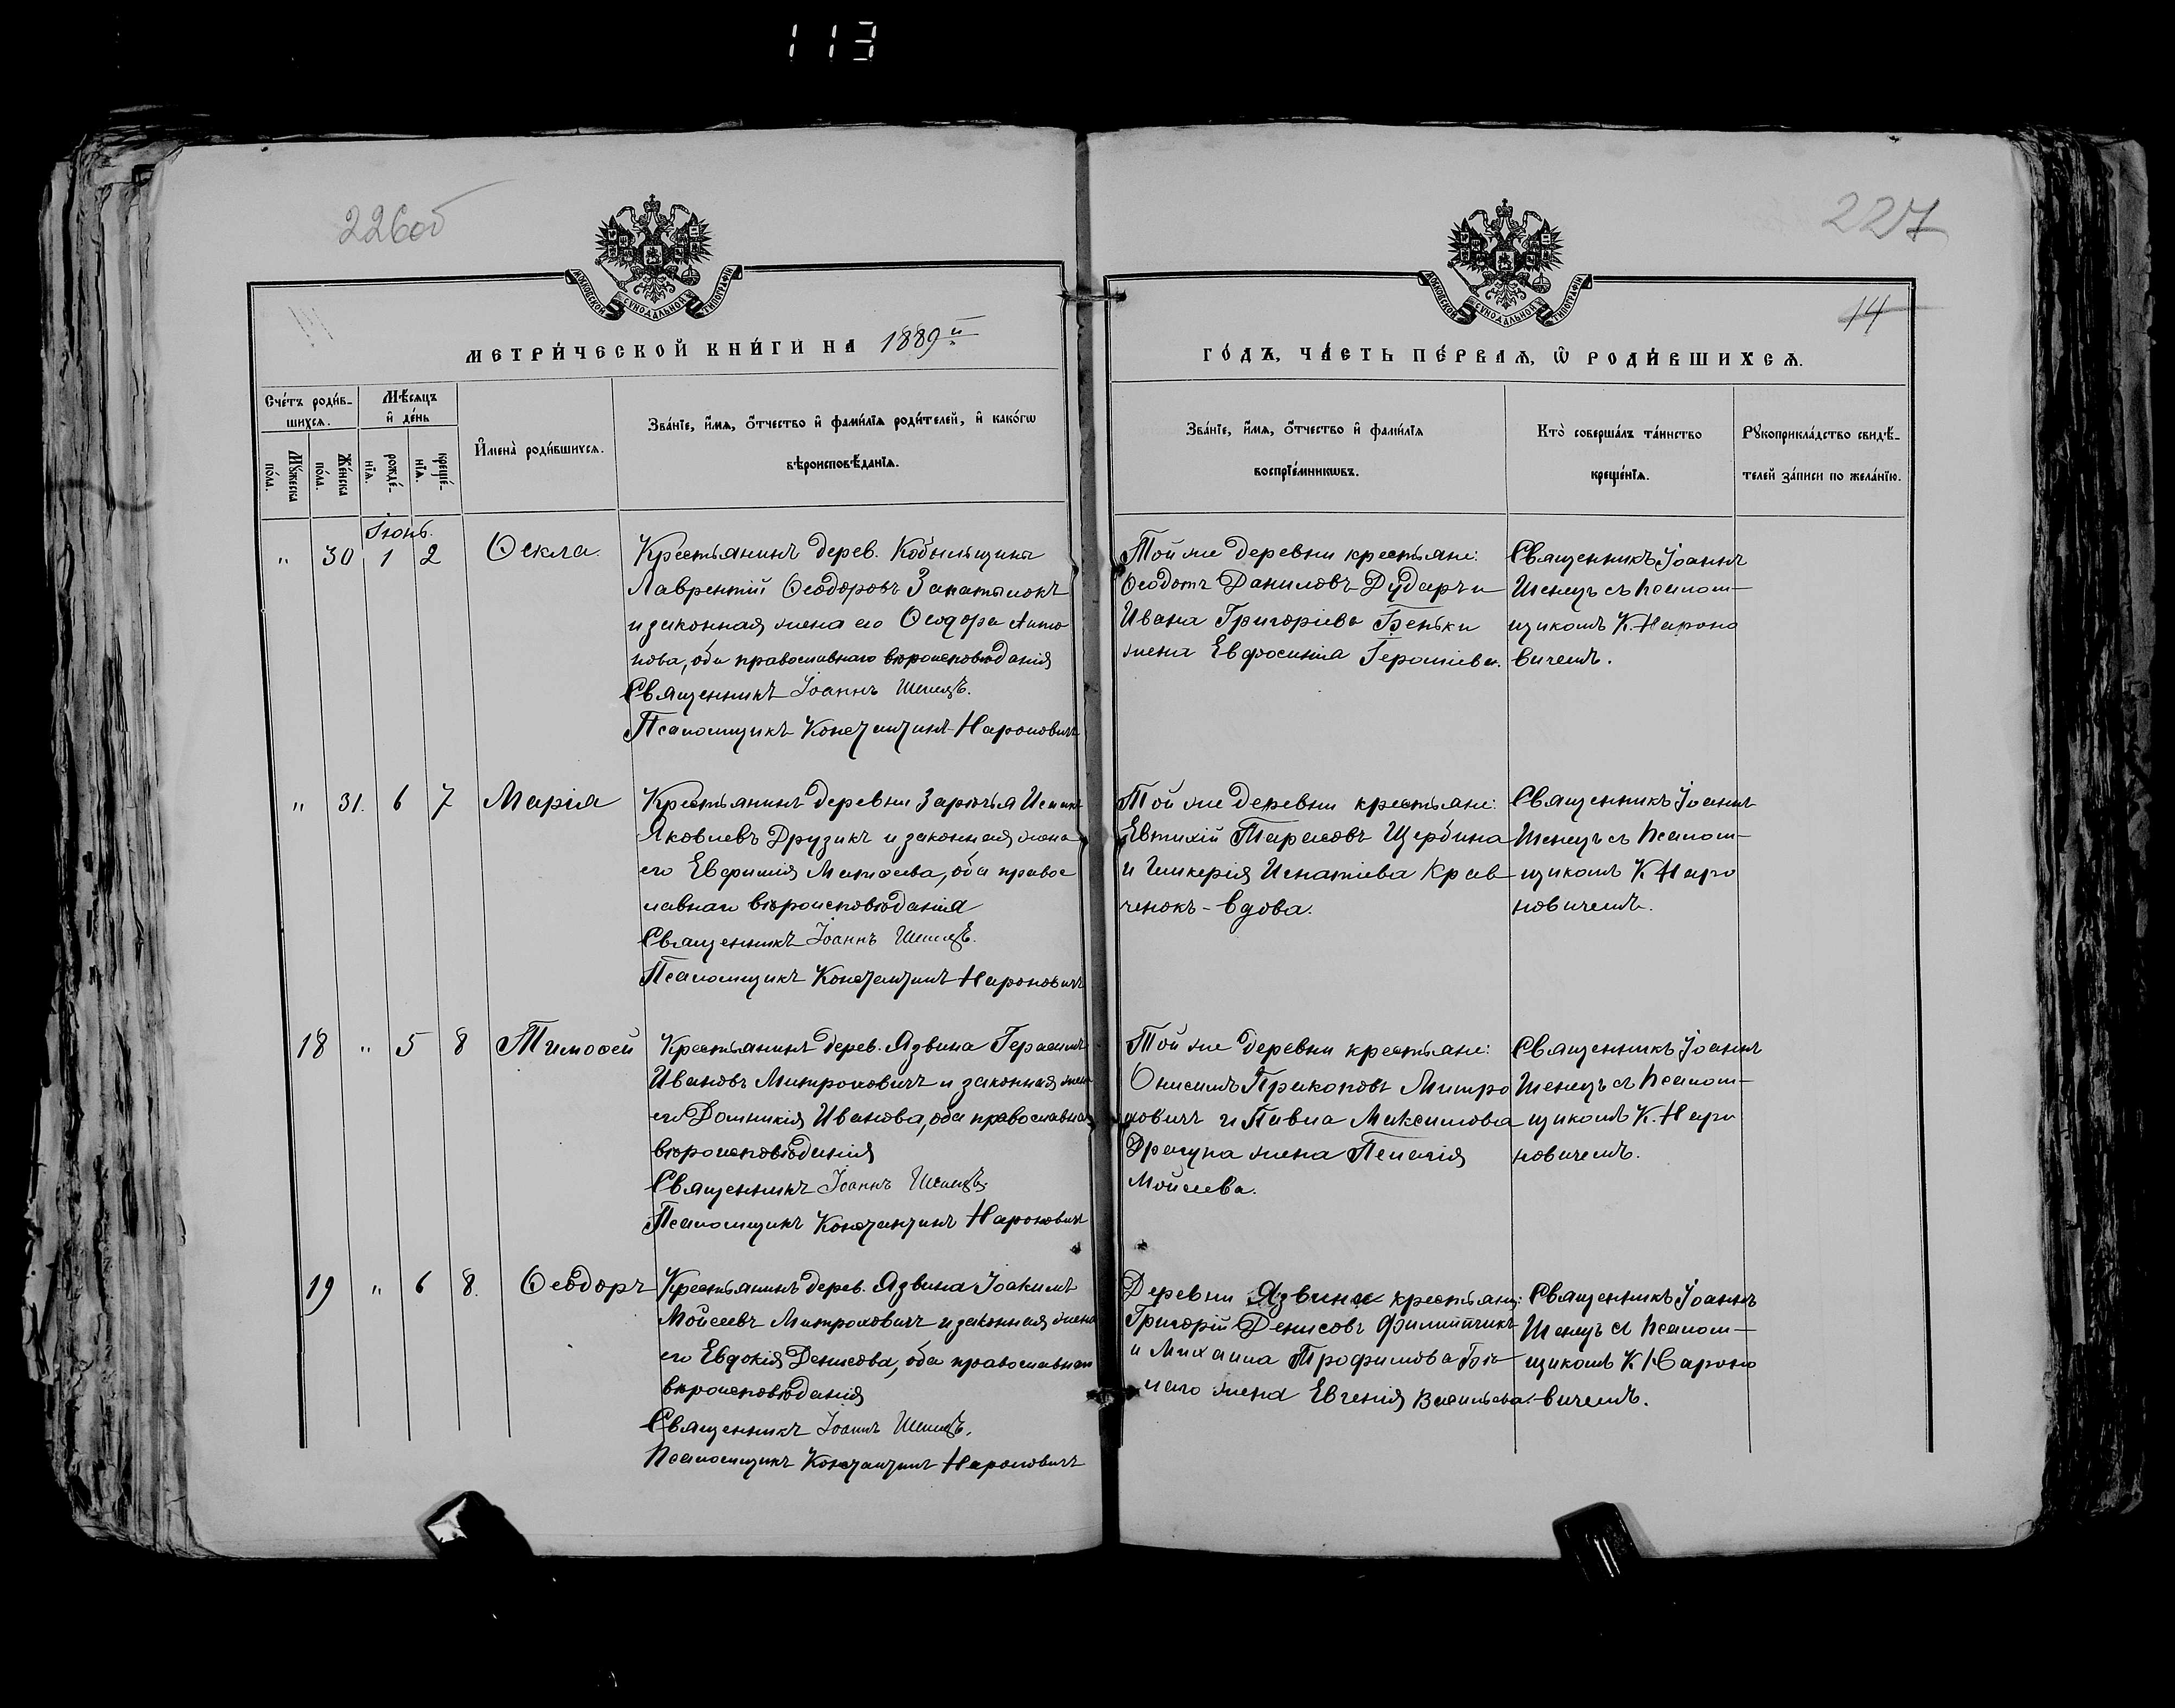 113
226об
227
14
МОСКОВСКОЙ СѴНОДАЛЬНОЙ ТИПОГРАФІИ
МОСКОВСКОЙ СѴНОДАЛЬНОЙ ТИПОГРАФІИ
МЕТРИ́ЧЕСКОЙ КНИ́ГИ НА 1889й
ГО́ДЪ, ЧА́СТЬ ПЕ́РВАѦ, Ѡ҆ РОДИ́ВШИХСѦ.
Сче́тъ роди́в-
шихсѧ.
Мѣ́сѧцъ
и҆ де́нь
Мꙋ́жеска
по́ла.
Же́нска
по́ла.
рожде́-
нїѧ.
креще́-
нїѧ.
И҆мена̀ роди́вшихсѧ.
Зва́нїе, и҆́мѧ, ѻ҆́тчество и҆ фами́лїѧ роди́телей, и҆ како́гѡ
вѣроисповѣ́данїѧ.
Зва́нїе, и҆́мѧ, ѻ҆́тчество и҆ фами́лїѧ
воспрїе́мникѡвъ.
Кто̀ соверша́лъ та́инство
креще́нїѧ.
Рꙋкоприкла́дство свидѣ́-
телей за́писи по жела́нїю.
Іюнь.
" 30 1 2 Ѳекла.
Крестьянинъ дерев. Кобыльщины
Лаврентій Ѳеодоровъ Запатылокъ
и законная жена его Ѳеодора Анто
нова, оба православнаго вѣроисповѣданія
Священникъ Іоаннъ Шенецъ.
Псаломщикъ Константинъ Наронович
Той же деревни крестьяне:
Ѳеодотъ Даниловъ Дударъ и
Ивана Григоріева Беньки
жена Евфросинія
Священникъ Іоаннъ
Шенецъ съ псалом-
щикомъ К. Нароно
вичемъ.
" 31. 6 7 Марія
Крестьянинъ деревни Зарѣчья
Яковлевъ Друзикъ и законная жена
его Евфимія Матѳеева, оба правос
лавнаго вѣроисповѣданія
Священникъ Іоаннъ Шенецъ.
Псаломщикъ Константинъ Наронович
Той же деревни крестьяне:
Евтихій Тарасовъ Щербина
и Гликерія Игнатіева Крав-
ченокъ - вдова.
Священникъ Іоаннъ
Шенецъ съ псалом-
щикомъ К. Наро
новичемъ.
18 " 5 8 Тимоѳей
Крестьянинъ дерев. Язвина Герасимъ
Ивановъ Митрохович и законная жена
его Домникія Иванова, оба православнаго
вѣроисповѣданія
Священникъ Іоаннъ Шенецъ.
Псаломщикъ Константинъ Наронович
Той же деревни крестьяне:
Онисимъ Прокоповъ Митро
хович и Павла Максимова
Драгуна жена Пелагія
Мойсеева.
Священникъ Іоаннъ
Шенецъ съ псалом-
щикомъ К. Наро
новичемъ.
19 " 6 8. Ѳеодоръ
Крестьянинъ дерев. Язвина Іоакимъ
Мойсеевъ Митрохович и законная жена
его Евдокія Денисова, оба православнаго
вѣроисповѣданія
Священникъ Іоаннъ Шенецъ.
Псаломщикъ Константинъ Наронович
Деревни Язвина крестьяне:
Григорій Денисовъ Филипчикъ
и Михаила Трофимова
жена Евгенія Васильева.
Священникъ Іоаннъ
Шенецъ съ псалом-
щикомъ К. Нароно
вичемъ.